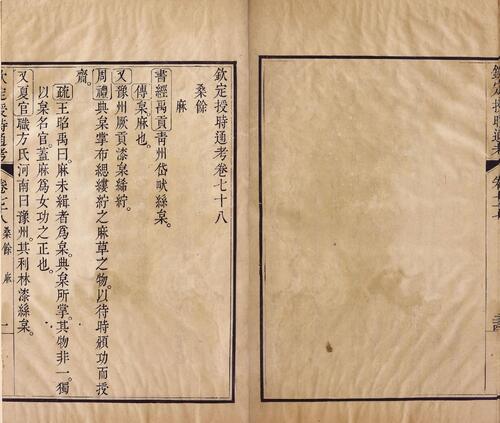 欽定授時通考卷七十八
桑餘
麻
書經禹貢靑州岱畎絲枲。
傳枲麻也。
又豫州厥貢漆枲絺紵。
周禮典枲掌布緦縷紵之麻草之物。以待時頒功而授
齎。
疏王昭禹曰。麻未緝者爲枲。典枲所掌。其物非一。獨
以枲名官。蓋麻爲女功之正也。
又夏官職方氏河南曰豫州。其利林漆絲枲。
欽定授時通考 卷七十八 桑餘 麻 一